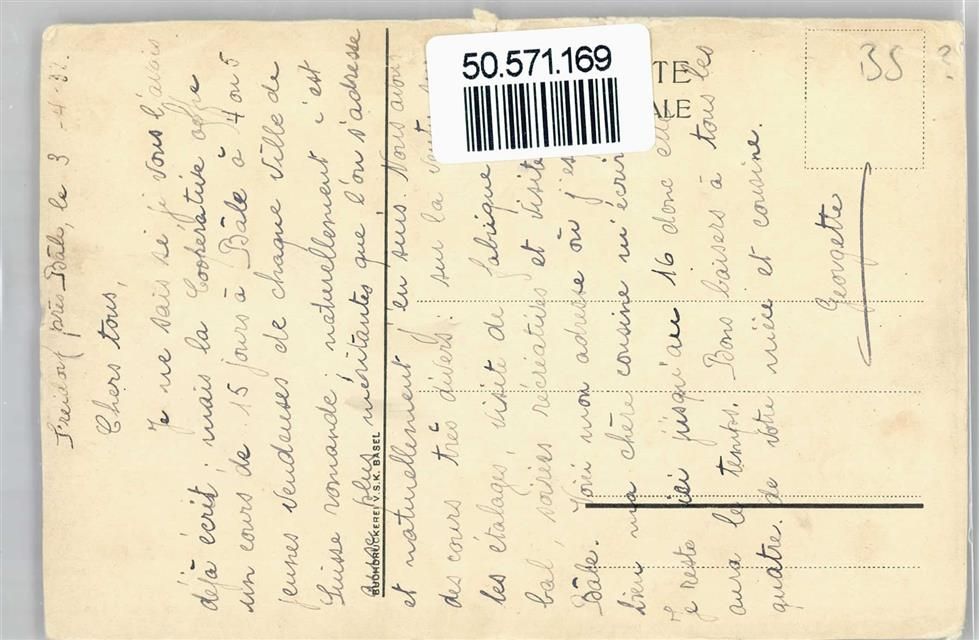 Freidorf près Bâle, le 3 - 4 - 32.
Chers tous,
Je ne sais si je vous l'avais
déjà écrit; mais la Coopérative offre
un cours de 15 jours à Bâle à 4 ou 5
jeunes vendeuses de chaque ville de
Suisse romande; naturellement c'est
aux plus méritantes que l'on s'adresse
et naturellement j'en suis. Nous avons
des cours très divers: sur la vente,
les étalages, visite de fabrique
bal, soirées récréatives et visite
Bâle. Voici mon adresse où j'es
bien ma chère cousine m'écrir
Je reste ici jusqu'au 16 donc elle
aura le temps. Bons baisers à tous les
quatre. de votre nièce et cousine.
Georgette
BUCHDRUCKEREI V.S.K. BASEL
50.571.169
TE
ALE
BS ?